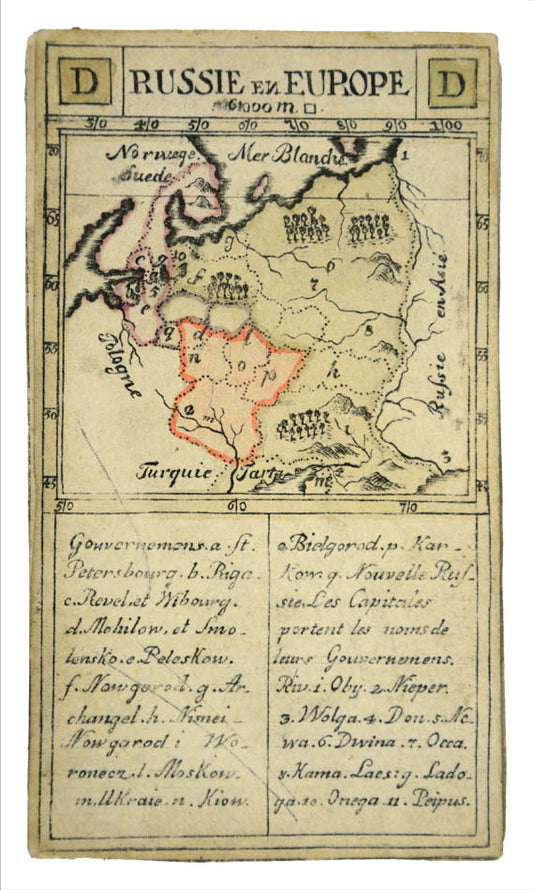 D RUSSIE EN EUROPE D
61000 m. □.
30 40 50 60 70 80 90 100
70 70
Norwege Mer Blanche 1
Suede
65 65
g
6
f
60 7 60
en Asie
8
q d l
55 n o p h 55
Pologne
Russie
50 a m i 50
3
Turquie Tarta
45 45
50 60 70
Gouvernemens. a. St.
Petersbourg. b. Riga.
c. Revel. et Wibourg.
d. Mohilow, et Smo-
lensko. e. Peleskow.
f. Nowgorod. g. Ar-
changel. h. Nisnei-
Nowgarod i Wo-
ronecz. l. Moskow.
m. Ukraie. n. Kiow.
o. Bielgorod. p. Kar-
kow. q. Nouvelle Rus-
sie. Les Capitales
portent les noms de
leurs Gouvernemens.
Riv. 1. Oby. 2. Nieper.
3. Wolga. 4. Don. 5. Ne-
wa. 6. Dwina. 7. Occa.
8. Kama. Lacs: 9. Lado-
ga. 10. Onega. 11. Peipus.